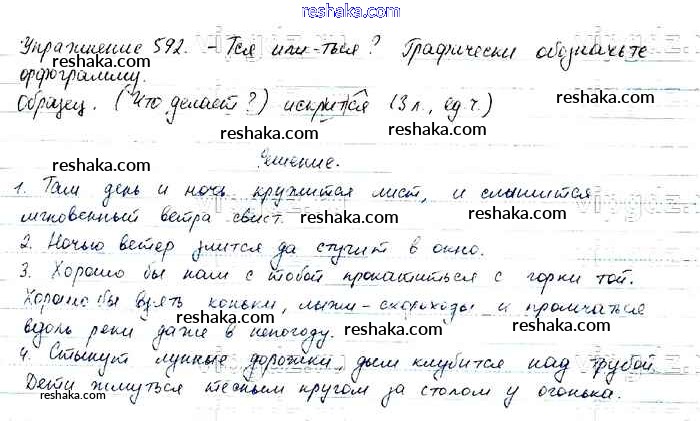 reshaka.com
Упражнение 592. -Тся или -ться? Графически обозначьте
орфограмму.
reshaka.com
reshaka.com
Образец. (Что делает?) искрится (3 л., ед. ч.)
reshaka.com
reshaka.com
Решение.
reshaka.com
1. Там день и ночь кружится лист, и слышится
мгновенный ветра свист. reshaka.com
reshaka.com
2. Ночью ветер злится да стучит в окно.
reshaka.com
3. Хорошо бы нам с тобой прокатиться с горки той.
reshaka.com
Хорошо бы взять коньки, лыжи-скороходы и промчаться
reshaka.com
вдоль реки даже в непогоду.
reshaka.com
4. Стынут лунные дорожки, дым клубится над трубой.
reshaka.com
Дети жмутся тесным кругом за столом у огонька.
reshaka.com
reshaka.com